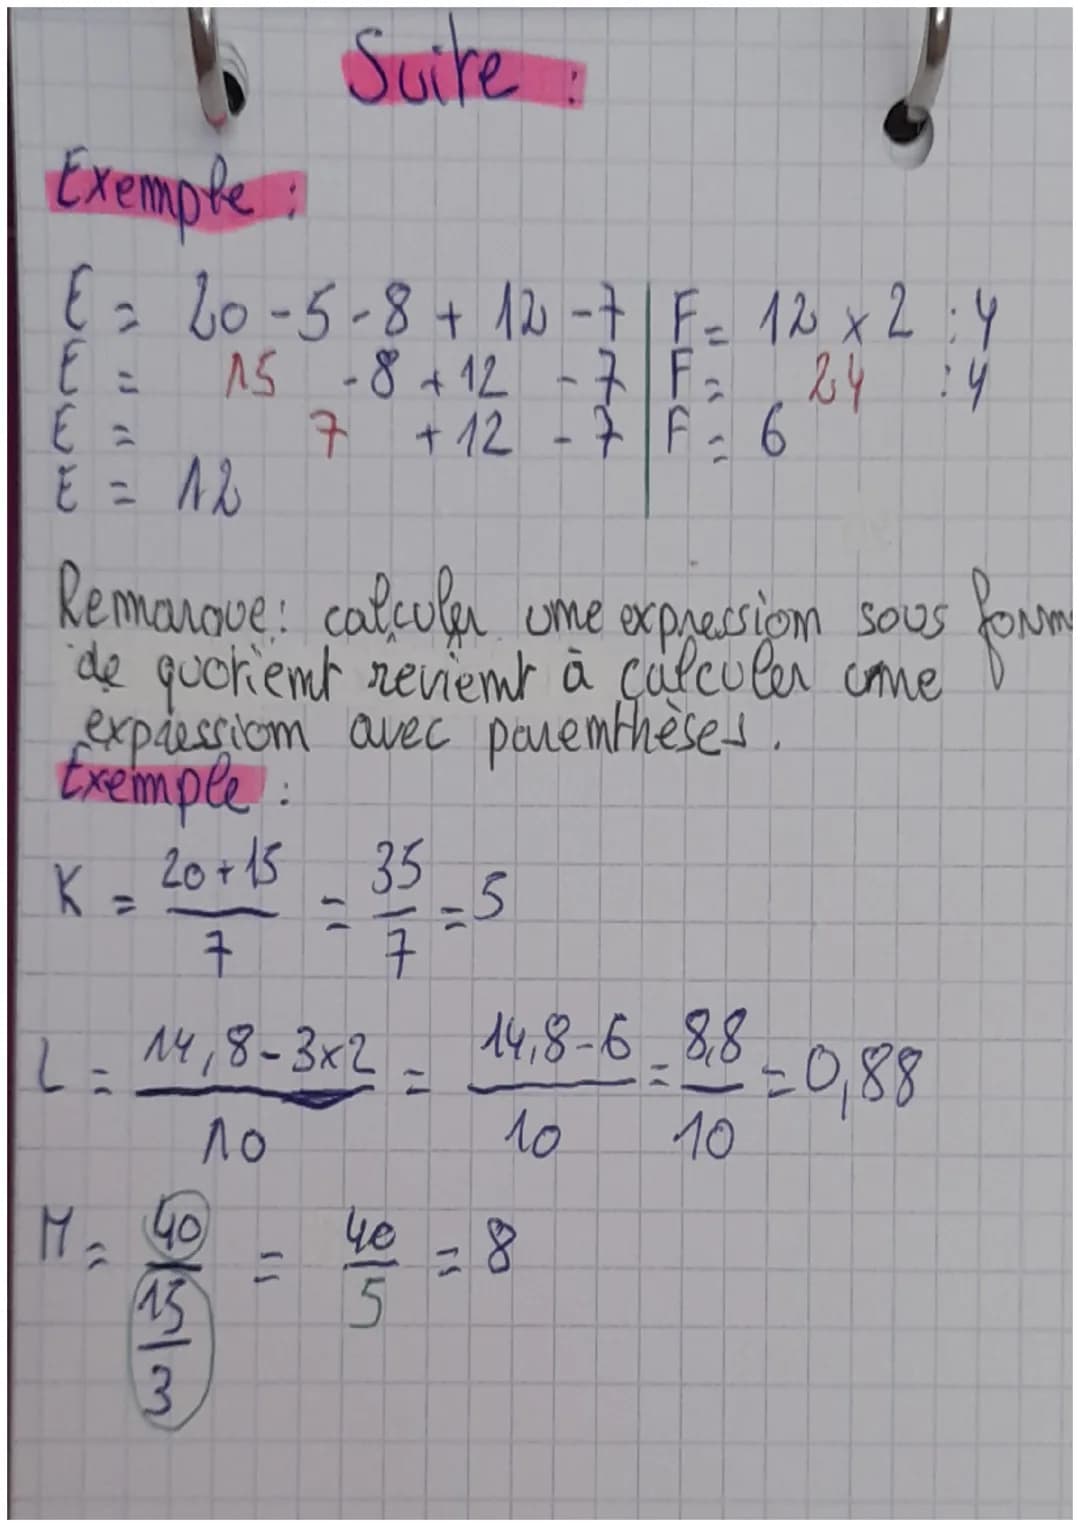 Suite :
Exemple :
E = 20 - 5 - 8 + 12 - 7 | F = 12 x 2 : 4
E = 15 - 8 + 12 - 7 | F = 24 : 4
E = 7 + 12 - 7 | F = 6
E = 12
Remarque : calculer une expression sous form
de quotient revient à calculer une
expression avec parenthèses.
Exemple :
K = \frac{20+15}{7} = \frac{35}{7} = 5
L = \frac{14,8-3x2}{10} = \frac{14,8-6}{10} = \frac{8,8}{10} = 0,88
M = \frac{40}{\frac{15}{3}} = \frac{40}{5} = 8